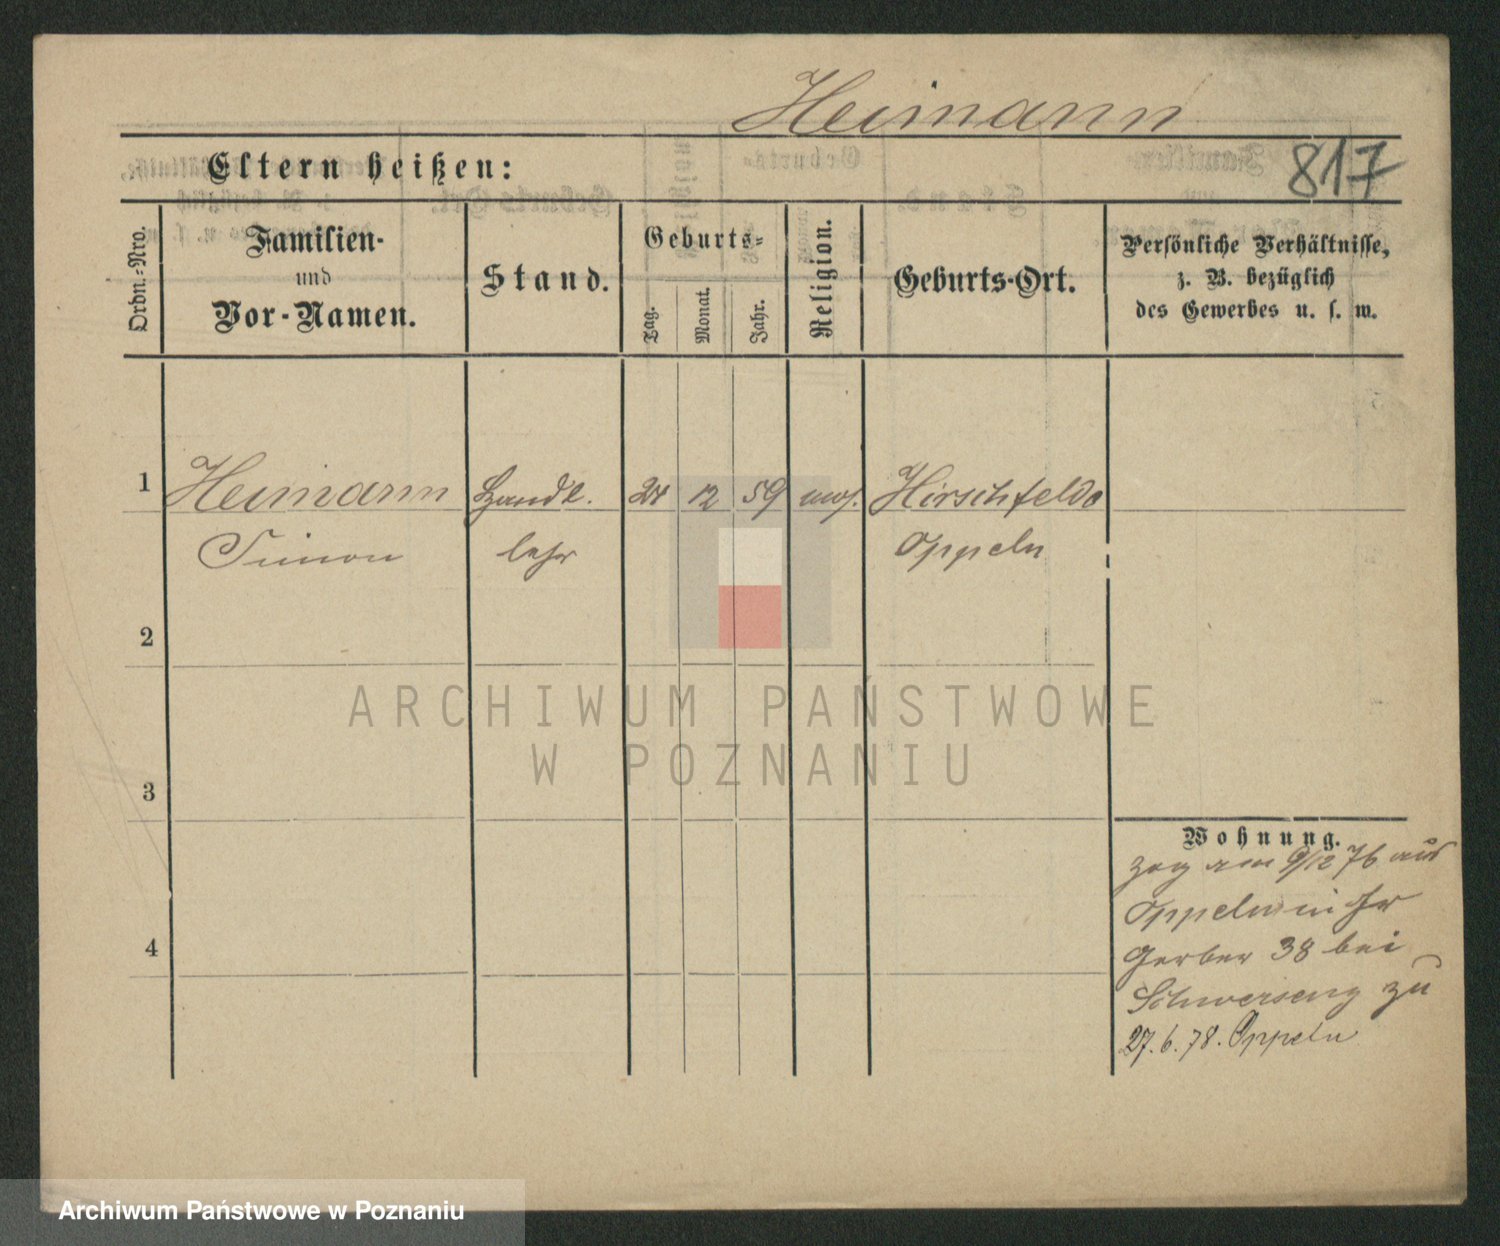 Heimann
Eltern heißen:
817
Ordn.-Nro.
Familien-
und
Vor-Namen.
Stand.
Geburts-
Tag.
Monat.
Jahr.
Religion.
Geburts-Ort.
Persönliche Verhältnisse,
z. B. bezüglich
des Gewerbes u. s. w.
1 Heimann Handl. 24 12 59 mos. Hirschfelde
Simon lehr Oppeln
2
ARCHIWUM PAŃSTWOWE
W POZNANIU
3
Wohnung.
zog am 9/12 76 aus
Oppeln in Gr
Gerber 38 bei
4
Schwersenz zu
27. 6. 78. Oppeln
Archiwum Państwowe w Poznaniu